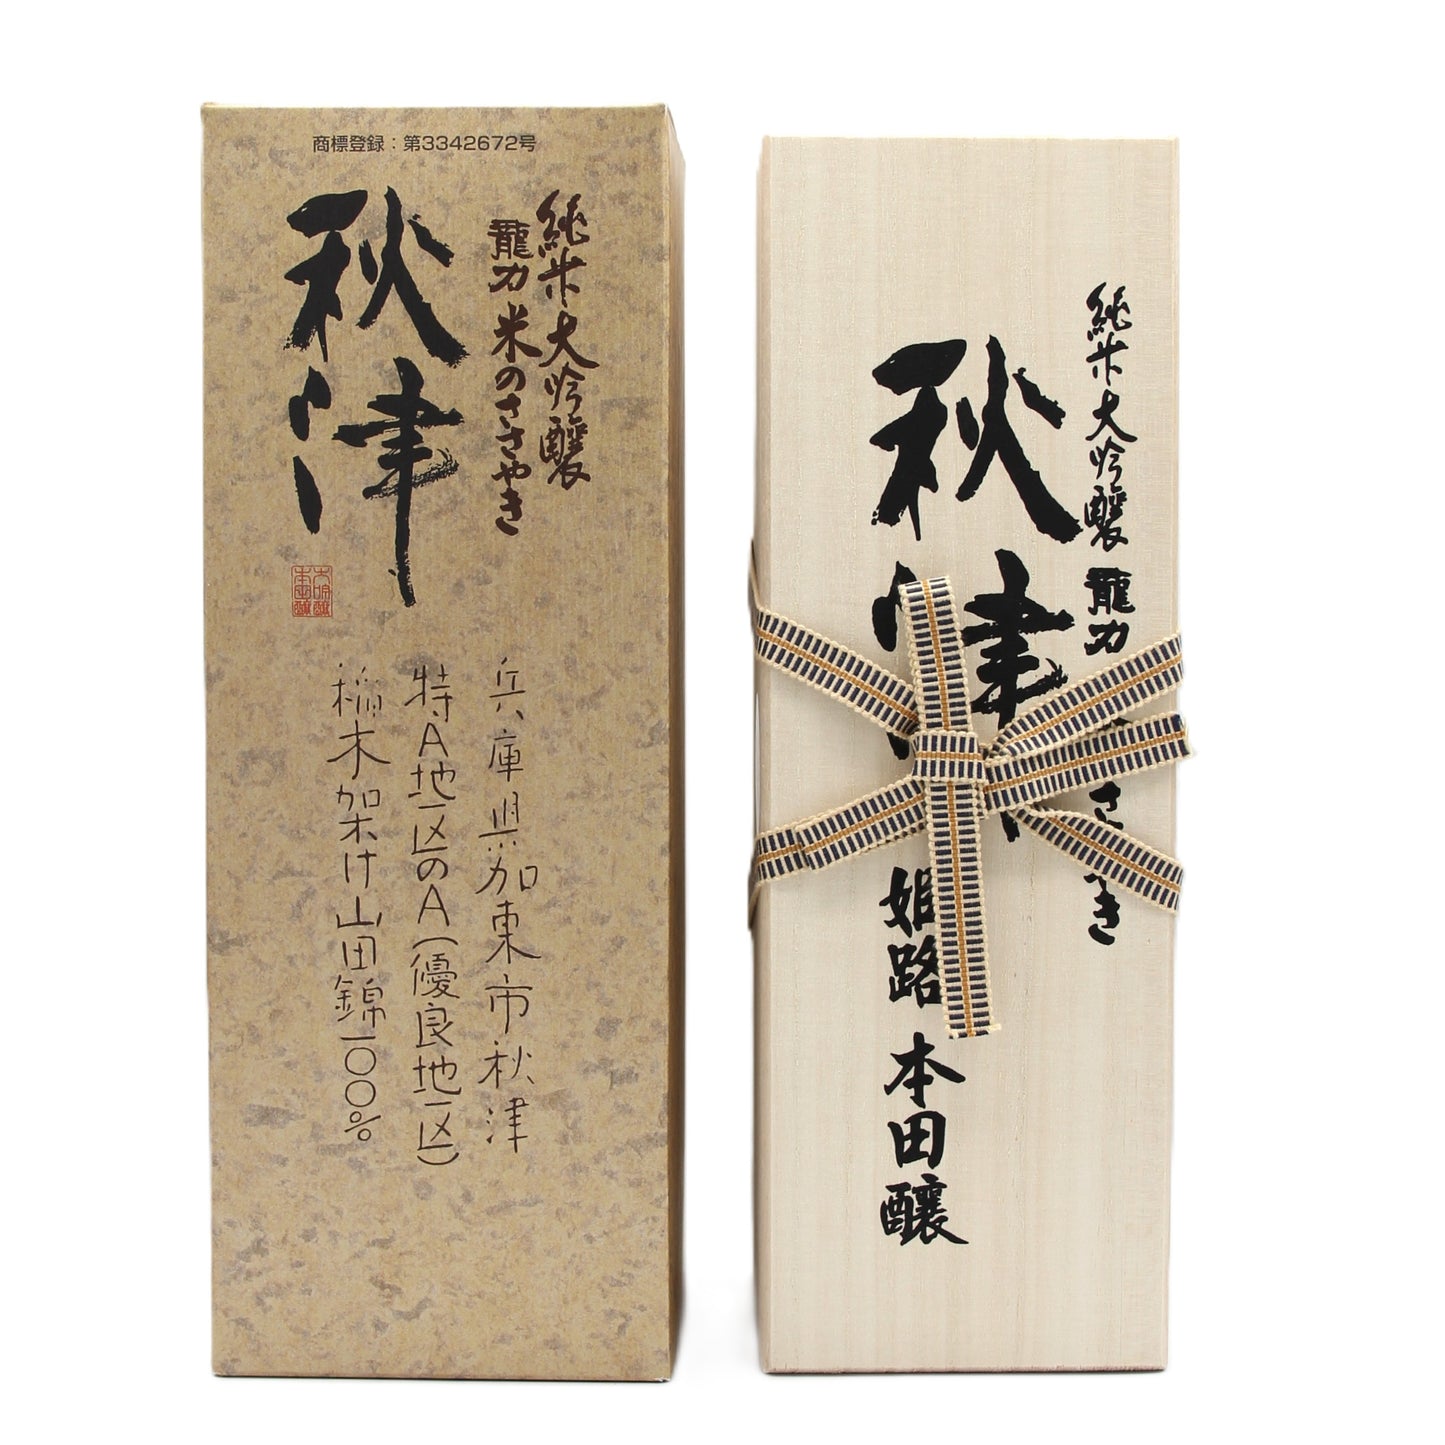 商標登録：第3342672号
純米大吟醸
龍力 米のささやき
秋津
兵庫県加東市秋津
特A地区のA(優良地区)
稲木架け山田錦一〇〇%
純米大吟醸 龍力 さ き
秋津
姫路 本田醸